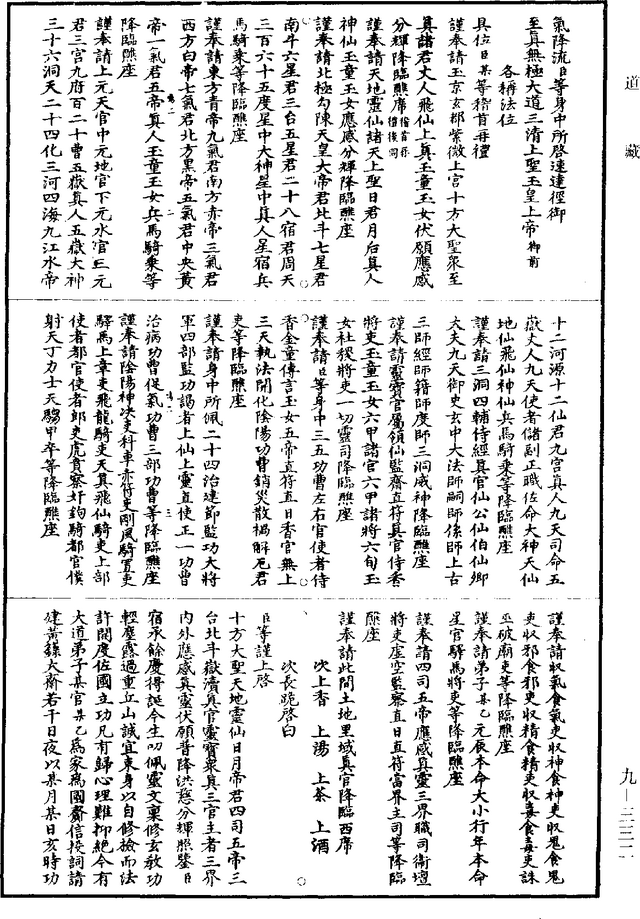 道藏
氣降流臣等身中所啓速達徑御
至真無極大道三清上聖玉皇上帝御前
各稱法位
具位臣某等稽首再禮
謹奉請玉京玄都紫微上宮十方大聖衆至
真諸君丈人飛仙上真玉童玉女伏願應感
分輝降臨醮席
謹奉請天地靈仙諸天上聖日君月后真人
神仙玉童玉女應感分輝降臨醮座
謹奉請北極勾陳天皇大帝君北斗七星君
南斗六星君三台五星君二十八宿君周天
三百六十五度星中大神星中真人星宿兵
馬騎乘等降臨醮座
謹奉請東方青帝九氣君南方赤帝三氣君
西方白帝七氣君北方黑帝五氣君中央黃
帝一氣君五帝真人玉童玉女兵馬騎乘等
降臨醮座
謹奉請上元天官中元地官下元水官三元
君三宮九府百二十曹五嶽真人五嶽大神
三十六洞天二十四化三河四海九江水帝
十二河源十二仙君九宮真人九天司命五
嶽丈人九天使者儲副正職佐命大神天仙
地仙飛仙神仙兵馬騎乘等降臨醮座
謹奉請三洞四輔侍經真官仙公仙伯仙卿
大夫九天御史玄中大法師嗣師係師上古
三師經師籍師度師三洞威神降臨醮座
謹奉請靈寶官屬領仙監齋直符真官侍香
將吏玉童玉女六甲諸官六甲諸將六旬玉
女社稷將吏一切靈司降臨醮座
謹奉請臣等身中三五功曹左右官使者侍
香金童傳言玉女五帝直符直日香官無上
三天執法開化陰陽功曹銷災散禍解厄君
吏等降臨醮座
謹奉請身中所佩二十四治建節監功大將
軍四部監功謁者上仙上靈直使正一功曹
治病功曹從氣功曹三部功曹等降臨醮座
謹奉請陰陽神決吏科車赤符吏剛風騎置吏
驛馬上章吏飛龍騎吏天真飛仙騎吏上部
使者都官使者郎吏虎賁察奸鉤騎都官僕
射天丁力士天騶甲卒等降臨醮座
謹奉請收氣食氣吏收神食神吏收鬼食鬼
吏收邪食邪吏收精食精吏收毒食毒吏誅
巫破廟吏等降臨醮座
謹奉請弟子某乙元辰本命大小行年本命
星官驛馬將吏等降臨醮座
謹奉請四司五帝應感真靈三界職司衛壇
將吏虛空監察直日直符當界主司等降臨
醮座
謹奉請此間土地里域真官降臨西席
次上香　上湯　上茶　上酒
次長跪啓白
臣等謹上啓
十方大聖天地靈仙日月帝君四司五帝三
台北斗嶽瀆真官靈寶衆真三官主者三界
內外應感真靈伏願普降洪慈分輝照鑒臣
宿承餘慶得誕今生叨佩靈文稟修玄教功
輕塵露過重丘山誠宜束身以自修檢而法
許開度佐國立功凡有歸心理難抑絕今有
大道弟子某官某乙為家為國齋信投詞請
建黃籙大齋若干日夜以某月某日亥時功
九—二三二